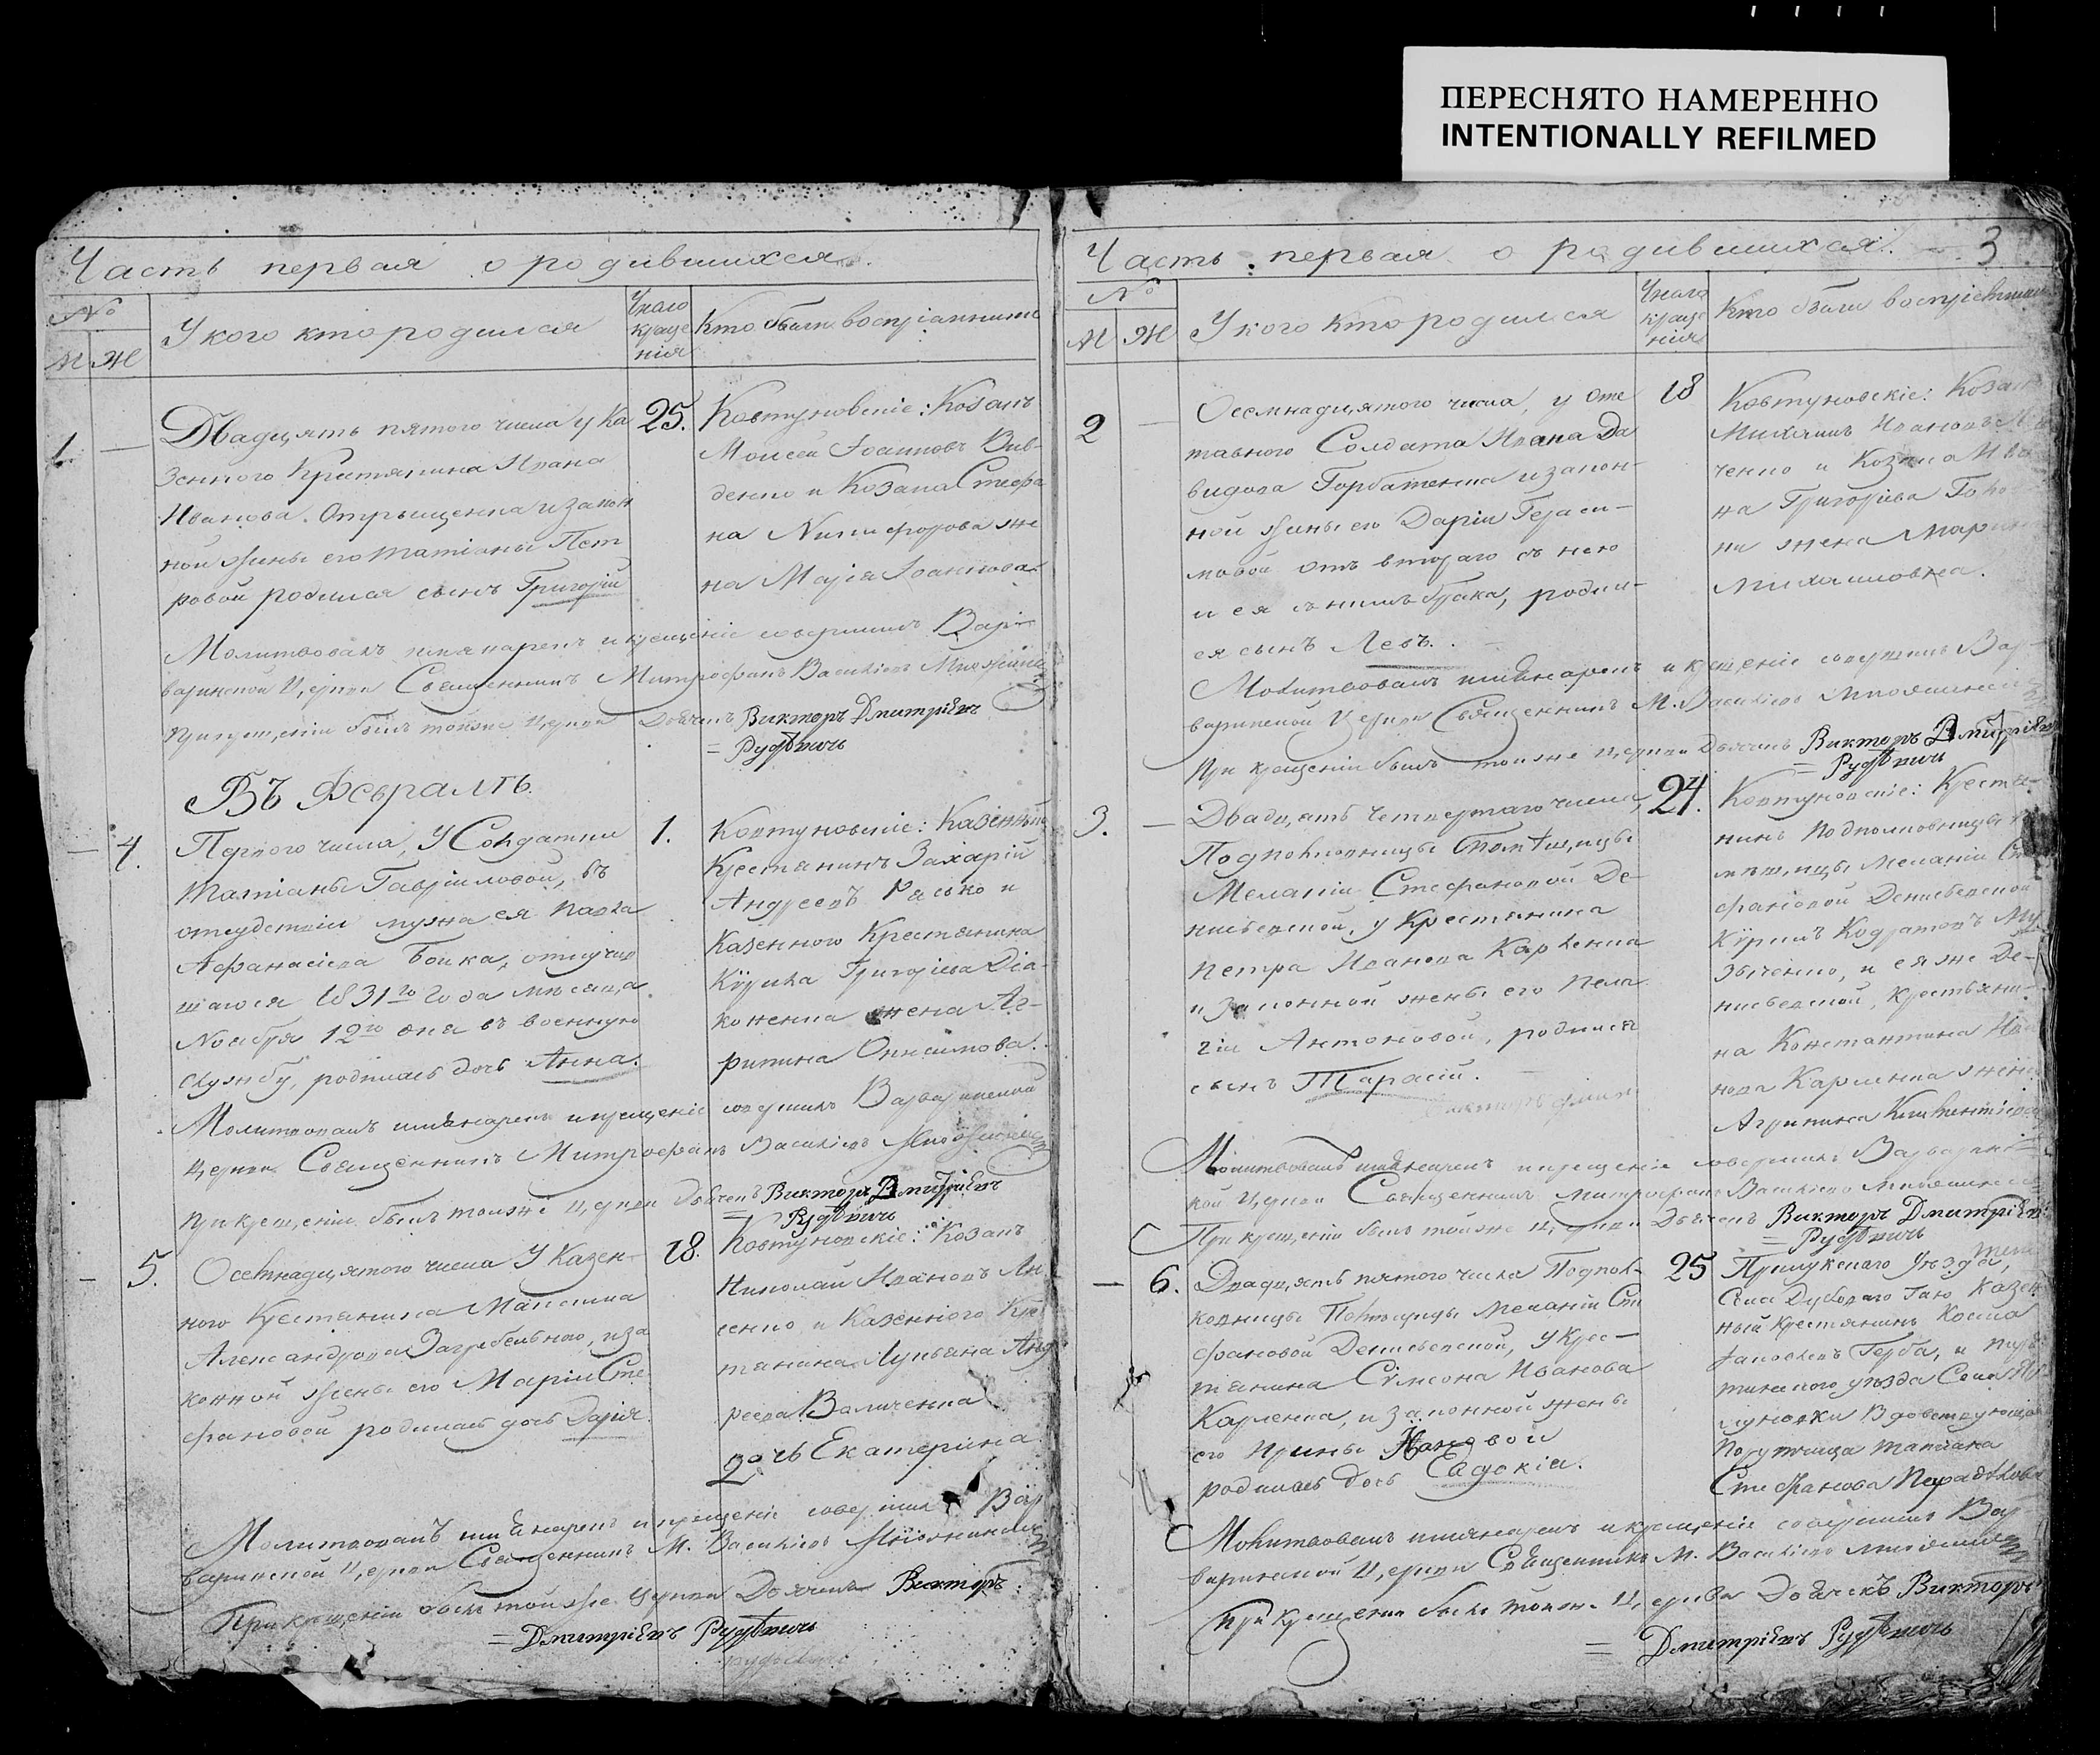 ПЕРЕСНЯТО НАМЕРЕННО
INTENTIONALLY REFILMED
Часть первая о родившихся
№
М Ж
У кого кто родился
Число креще нія
Кто были воспріемники
1. —
Двадцять пятого числа у Ка
зенного Крестянина Ивана
Иванова Отрыщенка и закон
ной жены его Татіаны Пет
ровой родился сынъ Григорій
25.
Ковтуновскіе: Козакъ
Моисей Іоанновъ Вив-
денко и Козака Стефа
на Никифорова же
на Марія Іоаннова
Молитвовалъ имянарекъ и крещеніе совершилъ Вар-
варинской Церкви Священникъ Митрофанъ Василіевъ
При крещеніи былъ тойже Церкви Дьячекъ Викторъ Дмитріевъ
= Рудѣвичь
Въ Февралѣ.
— 4.
Первого числа, У Солдатки
Татіаны Гавріиловой, въ
отсудствіи мужа ея Павла
Афанасіева Бойка, отлучив
шагося 1831го Года мѣсяца
Ноября 12го дня въ военную
службу, родилась дочь Анна.
1.
Ковтуновскіе: Казенный
Крестянинъ Захарій
Андреевъ Расько и
Казенного Крестянина
Кирила Григоріева Дія-
коненка жена Аг-
рипина Онисимова.
Молитвовалъ имянарекъ и крещеніе совершилъ Варваринской
Церкви Священникъ Митрофанъ Василіевъ
При крещеніи былъ тойже Церкви Дьячекъ Викторъ Дмитріевъ
= Рудѣвичь
— 5.
Осемнадцятого числа У Казен-
ного Крестянина Максима
Александрова Загребельного, и за
конной жены его Маріи Сте
фановой родилась дочь Дарія.
18.
Ковтуновскіе: Козакъ
Николай Ивановъ
сенко и Казенного Кре
тянина Лукьяна Анд
реева Величенка
дочь Екатерина
Молитвовалъ имянарекъ и крещеніе совершилъ Вар
варинской Церкви Священникъ М. Василіевъ
При крещеніи былъ тойже Церкви Дьячекъ Викторъ
= Дмитріевъ Рудѣвичь
Часть первая о родившихся. 3
№
М Ж
У кого кто родился
Число креще нія
Кто были воспріемники
2 —
Осемнадцятого числа, у Отс
тавного Солдата Ивана Да
видова Горбатенка и закон-
ной жены его Даріи Гераси-
мовой отъ втораго съ нею
и ея съ нимъ брака, родил-
ся сынъ Левъ.
18
Ковтуновскіе: Козакъ
Михаилъ Ивановъ
ченко и Козака Ива
на Григоріева
ки жена Марина
Михайловна.
Молитвовалъ имянарекъ и крещеніе совершилъ Вар-
варинской Церкви Священникъ М. Василіевъ
При крещеніи былъ тойже церкви Дьячекъ Викторъ Дмитріевъ
= Рудѣвичь
3. —
Двадцять четвертаго числа,
Подполковницы Помѣщицы
Меланіи Стефановой Де-
нисьевской, у Крестянина
Петра Иванова Карленка
и законной жены его Пела
гіи Антоновой, родился
сынъ Тарасій.
24.
Ковтуновскіе: Крестя-
нинъ Подполковницы
мѣщицы Меланіи Сте
фановой Денисьевской
Кирилъ Кодратовъ
зыченко, и ея же Де-
нисьевской, крестьяни-
на Константина Ива
нова Карленка жена
Агрипина
Молитвовалъ имянарекъ и крещеніе совершилъ Варваринс-
кой Церкви Священникъ Митрофанъ Василіевъ
При крещеніи былъ тойже Церкви Дьячекъ Викторъ Дмитріевъ
= Рудѣвичь
— 6.
Двадцять пятого числа Подпол-
ковницы Помѣщицы Меланіи Сте
фановой Денисьевской, У Крес-
тянина Сѵмеона Иванова
Карленка, и законной жены
его Ирины
родилась дочь Евдокія.
25
Прилукского Уѣзда,
Села Дубового Гаю Казен
ный Крестянинъ Косма
Яковлевъ Герба, и
тинского уѣзда Села
луновки Вдовствующая
Порутчица Татіана
Стефанова
Молитвовалъ имянарекъ и крещеніе совершилъ Вар
варинской Церкви Священникъ М. Василіевъ
При крещеніи былъ тойже Церкви Дьячекъ Викторъ
= Дмитріевъ Рудѣвичь